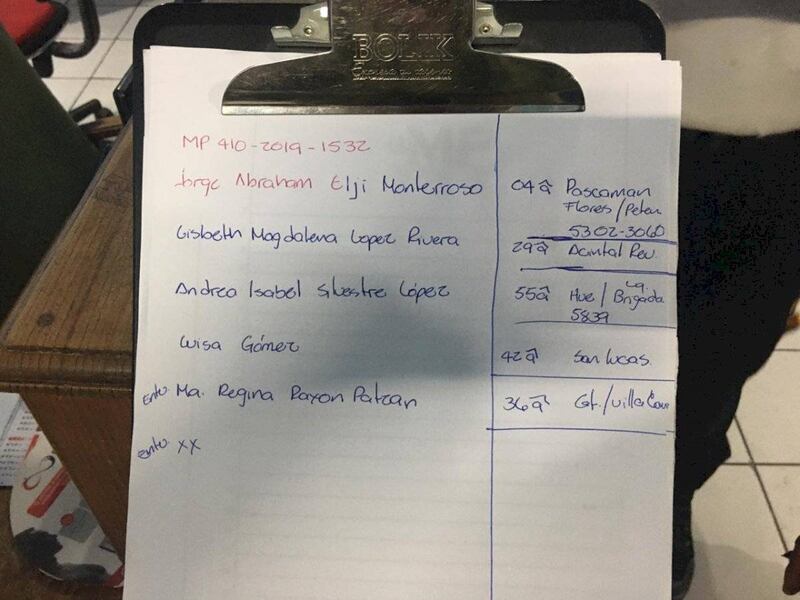 BOLIK
MP 410-2019-1532
Jorge Abraham Elji Monterroso 04â Poscaman
Flores/Peten
5302-3060
Lisbeth Magdalena Lopez Rivera 29â Acintal Reu.
Andrea Isabel Silvestre López 55â Hue/Brigada
5839
Luisa Gómez 42â San Lucas.
Entu. Ma. Regina Raxon Patzan 36â Gt./Villa
entu. xx